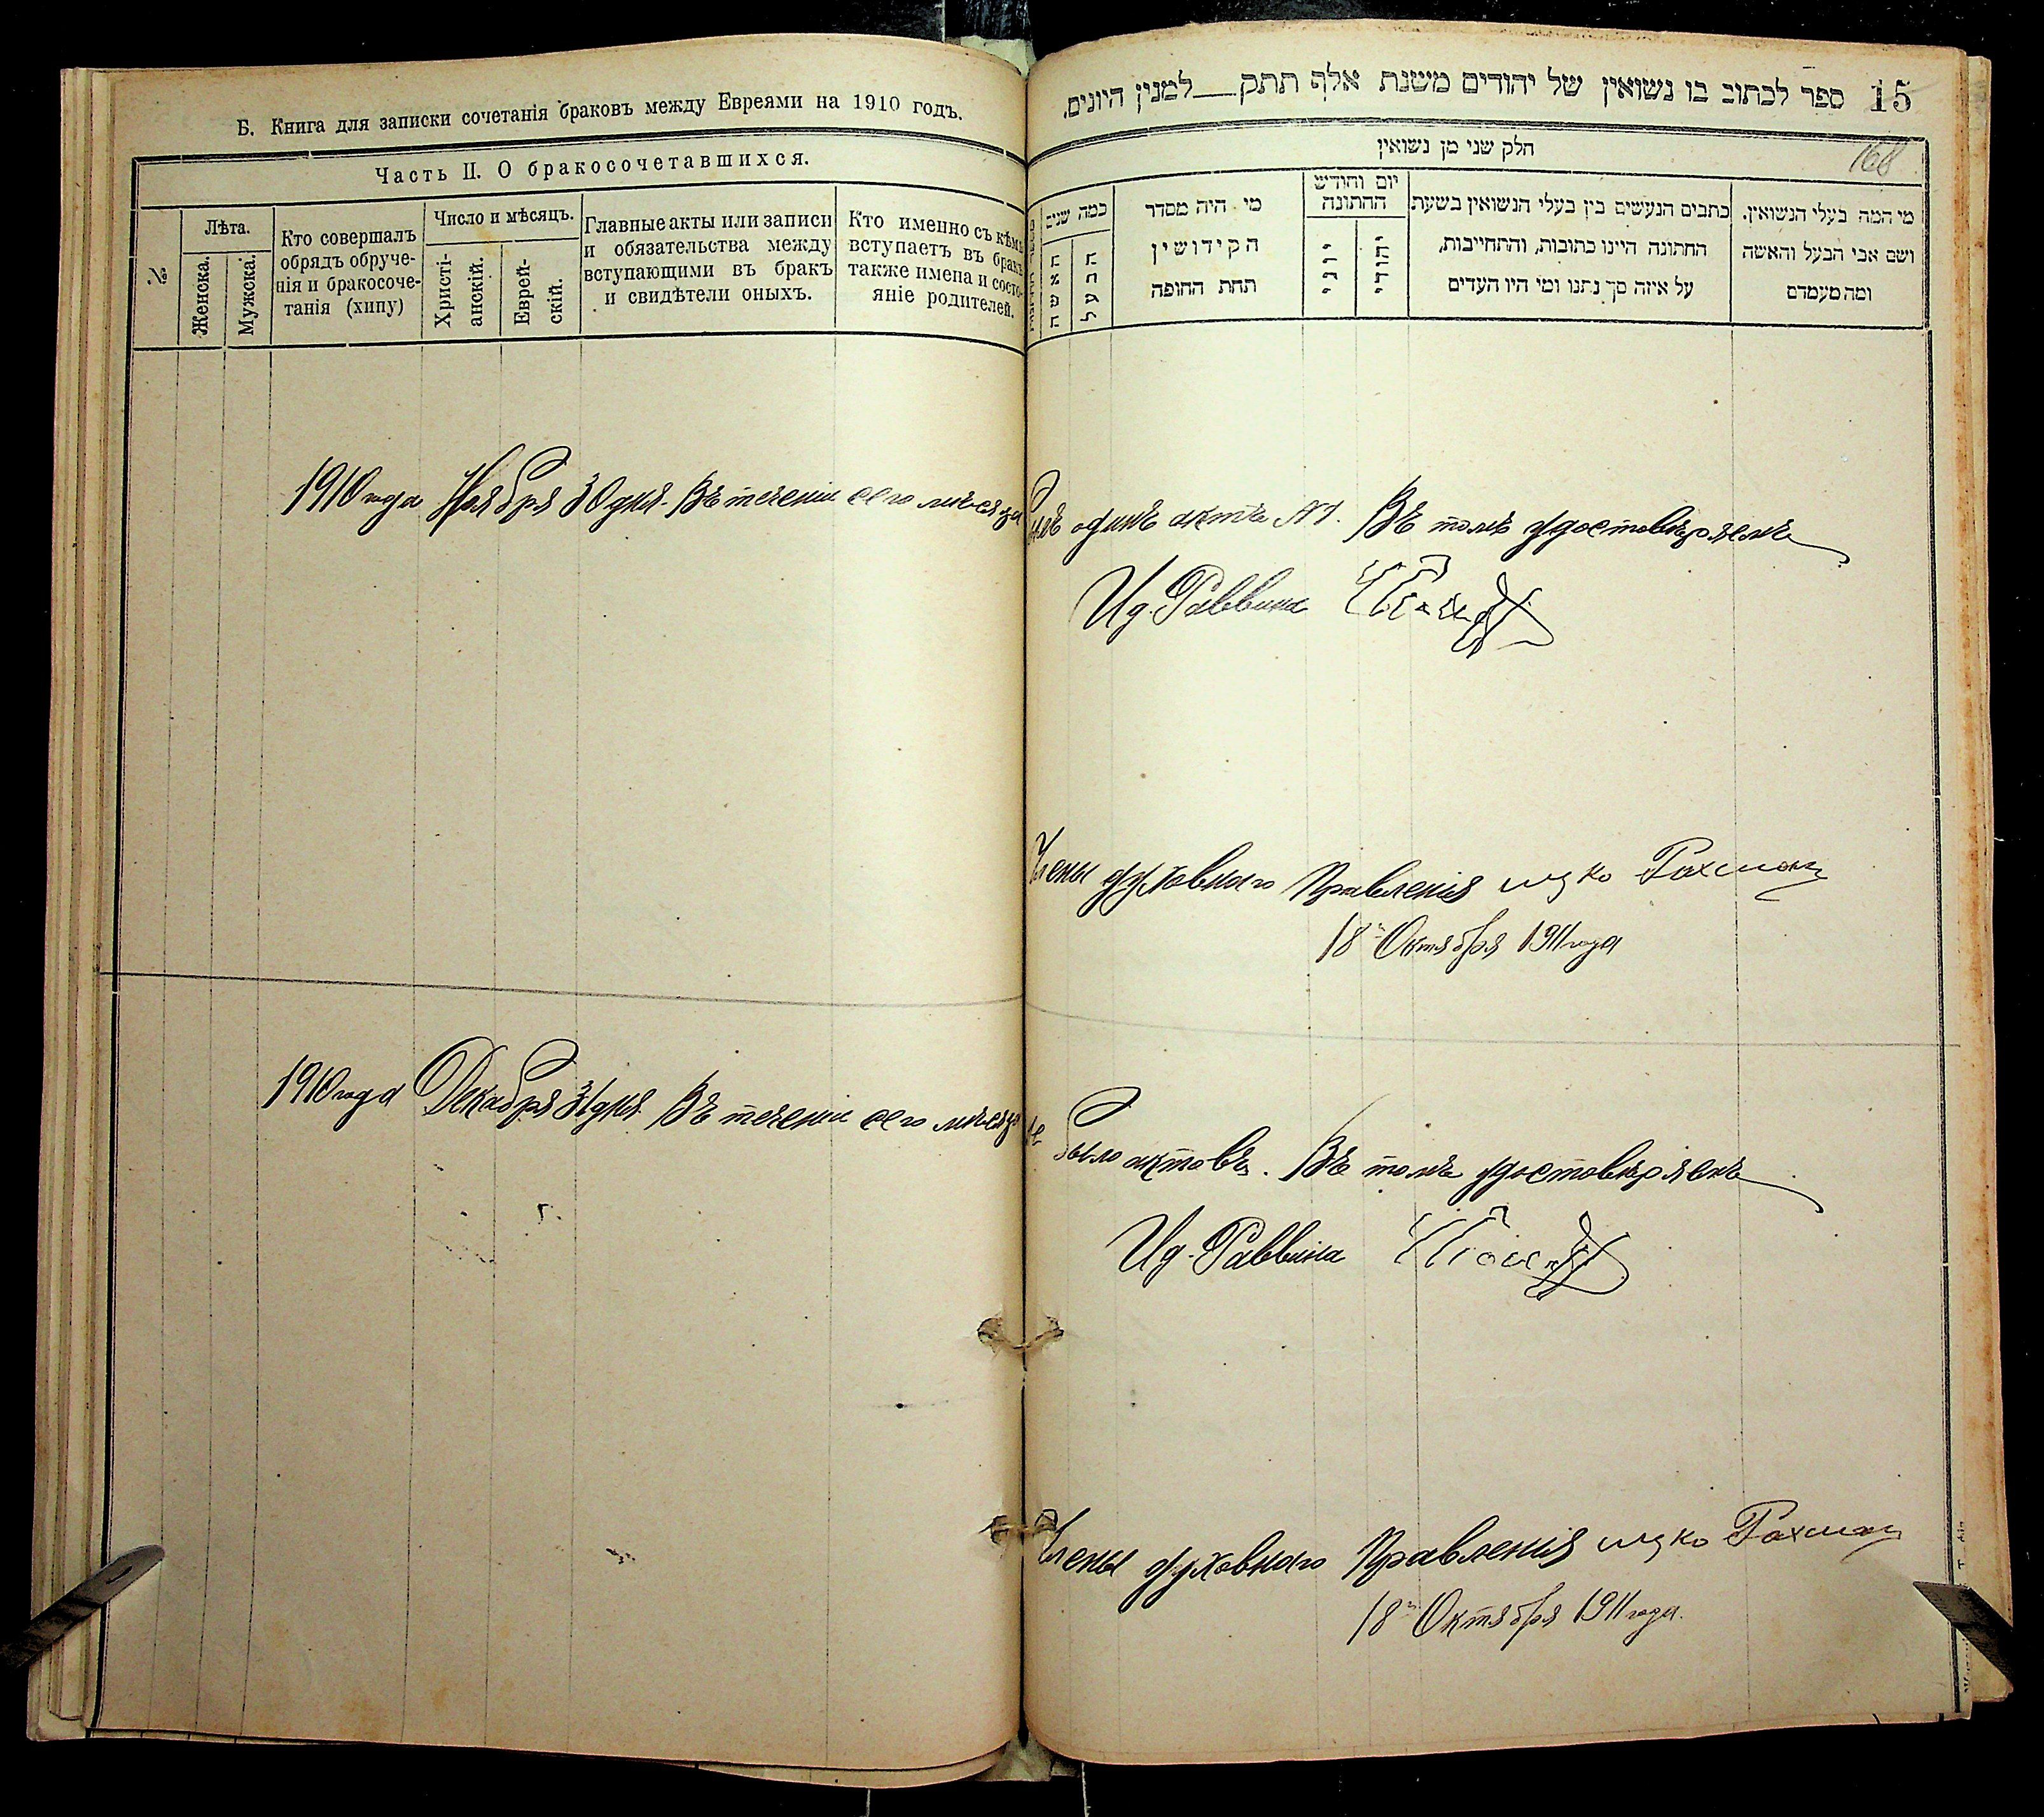 Б. Книга для записки сочетанія браковъ между Евреями на 1910 годъ.
Часть II. О бракосочетавшихся.
№
Лѣта.
Женска.
Мужска.
Кто совершалъ
обрядъ обруче-
нія и бракосоче-
танія (хипу)
Число и мѣсяцъ.
Христі-
анскій.
Еврей-
скій.
Главные акты или записи
и обязательства между
вступающими въ бракъ
и свидѣтели оныхъ.
Кто именно съ кѣмъ
вступаетъ въ бракъ
также имена и состо-
яніе родителей.
15 ספר לכתוב בו נשואין של יהודים משנת אלף תתק__למנין היונים.
168
חלק שני מן נשואין
מי המה בעלי הנשואין.
ושם אבי הבעל והאשה
ומה מעמדם
כתבים הנעשים בין בעלי הנשואין בשעת
החתונה היינו כתובות, והתחייבות,
על איזה סך נתנו ומי היו העדים
יום וחודש
החתונה
יהודי
יוני
מי היה מסדר
הקידושין
תחת החופה
כמה שנים
הבעל
האשה
1910 года Ноября 30 дня. Въ теченіи сего мѣсяца
одинъ актъ №1. Въ томъ удостовѣряемъ
Ид. Раввина
Члены духовнаго Правленія ицко Рахман
18 Октября 1911 года
1910 года Декабря 31 дня. Въ теченіи сего мѣсяца не
было актовъ. Въ томъ удостовѣряемъ
Ид. Раввина
Члены духовнаго Правленія ицко Рахман
18 Октября 1911 года.